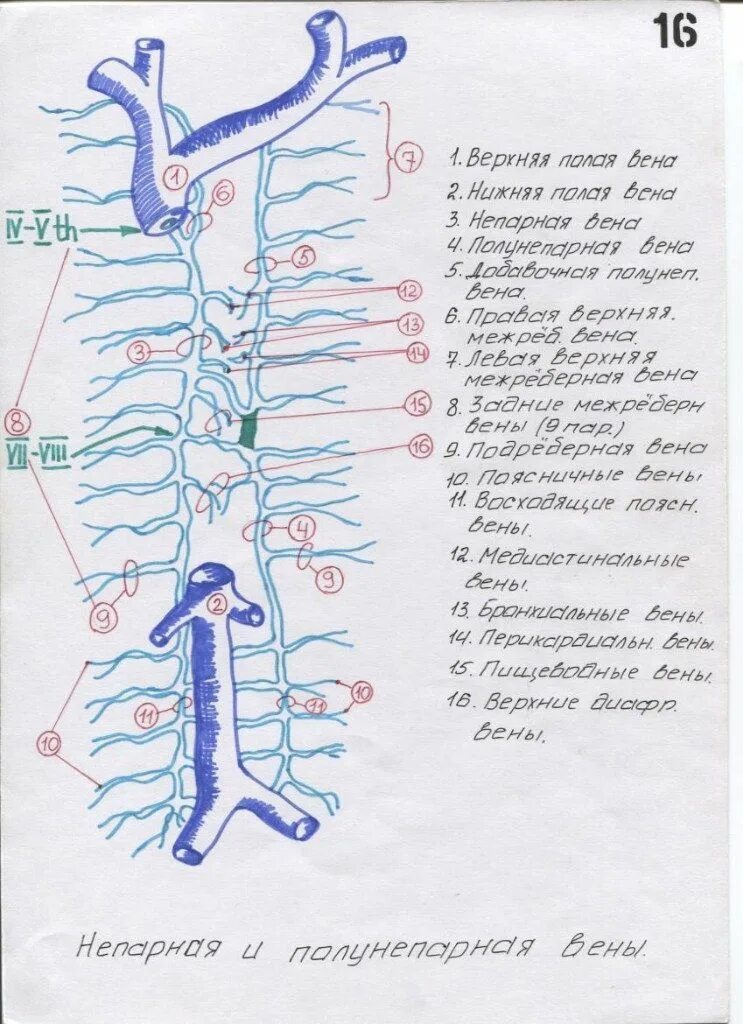 16
1. Верхняя полая вена
2. Нижняя полая вена
3. Непарная вена
4. Полунепарная вена
5. Добавочная полунеп.
вена.
6. Правая верхняя.
межрёб. вена.
7. Левая верхняя
межрёберная вена
8. Задние межрёберн
вены (9 пар.)
9. Подрёберная вена
10. Поясничные вены
11. Восходящие поясн.
вены.
12. Медиастинальные
вены.
13. Бронхиальные вены.
14. Перикардиальн. вены.
15. Пищеводные вены.
16. Верхние диафр.
вены.
1
7
6
IV-V th
5
12
13
3
14
8
15
VII-VIII
16
4
9
9
2
10
11
11
10
Непарная и полунепарная вены.